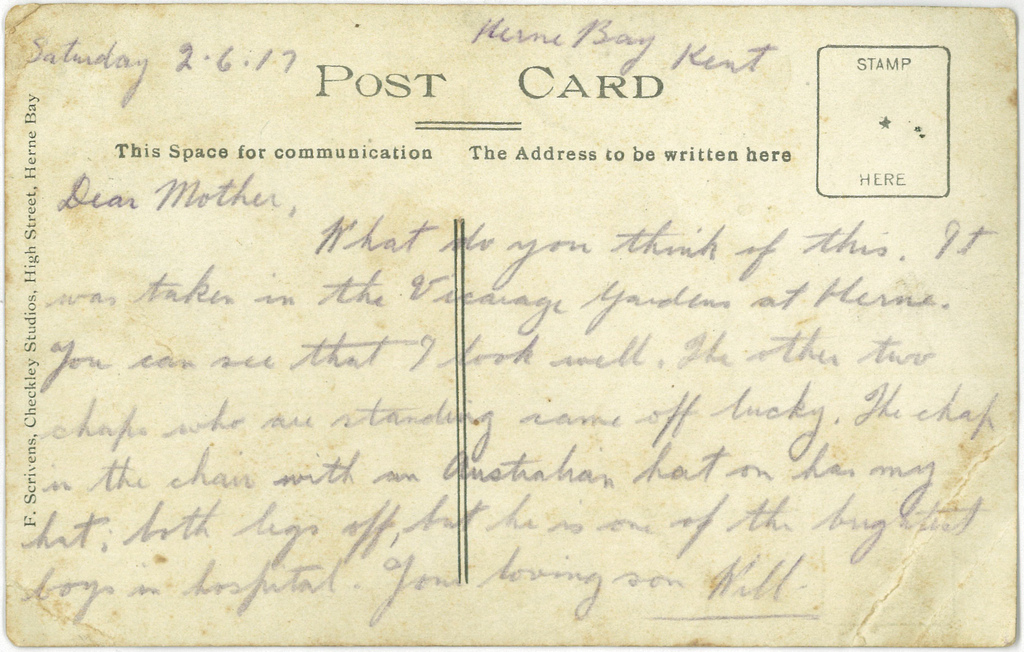 Saturday 2.6.17
Herne Bay Kent
POST CARD
STAMP
HERE
This Space for communication
The Address to be written here
F. Scrivens, Checkley Studios, High Street, Herne Bay
Dear Mother,
What do you think of this. It
was taken in the Vicarage Gardens at Herne.
You can see that I look well. The other two
chaps who are standing came off lucky. The chap
in the chair with an Australian hat on has my
hat; both legs off, but he is one of the brightest
boys in hospital. Your loving son Will.